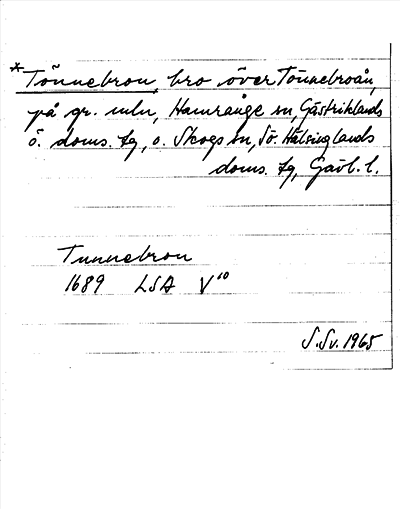 * Tönnebron, bro över Tönnebroån,
på gr. mln, Hamrånge sn, Gästriklands
ö. doms. tg, o. Skogs sn, Sö. Hälsinglands
doms. tg, Gävl. l.
Tunnebron
1689 LSA V¹⁰
S.Sv. 1965